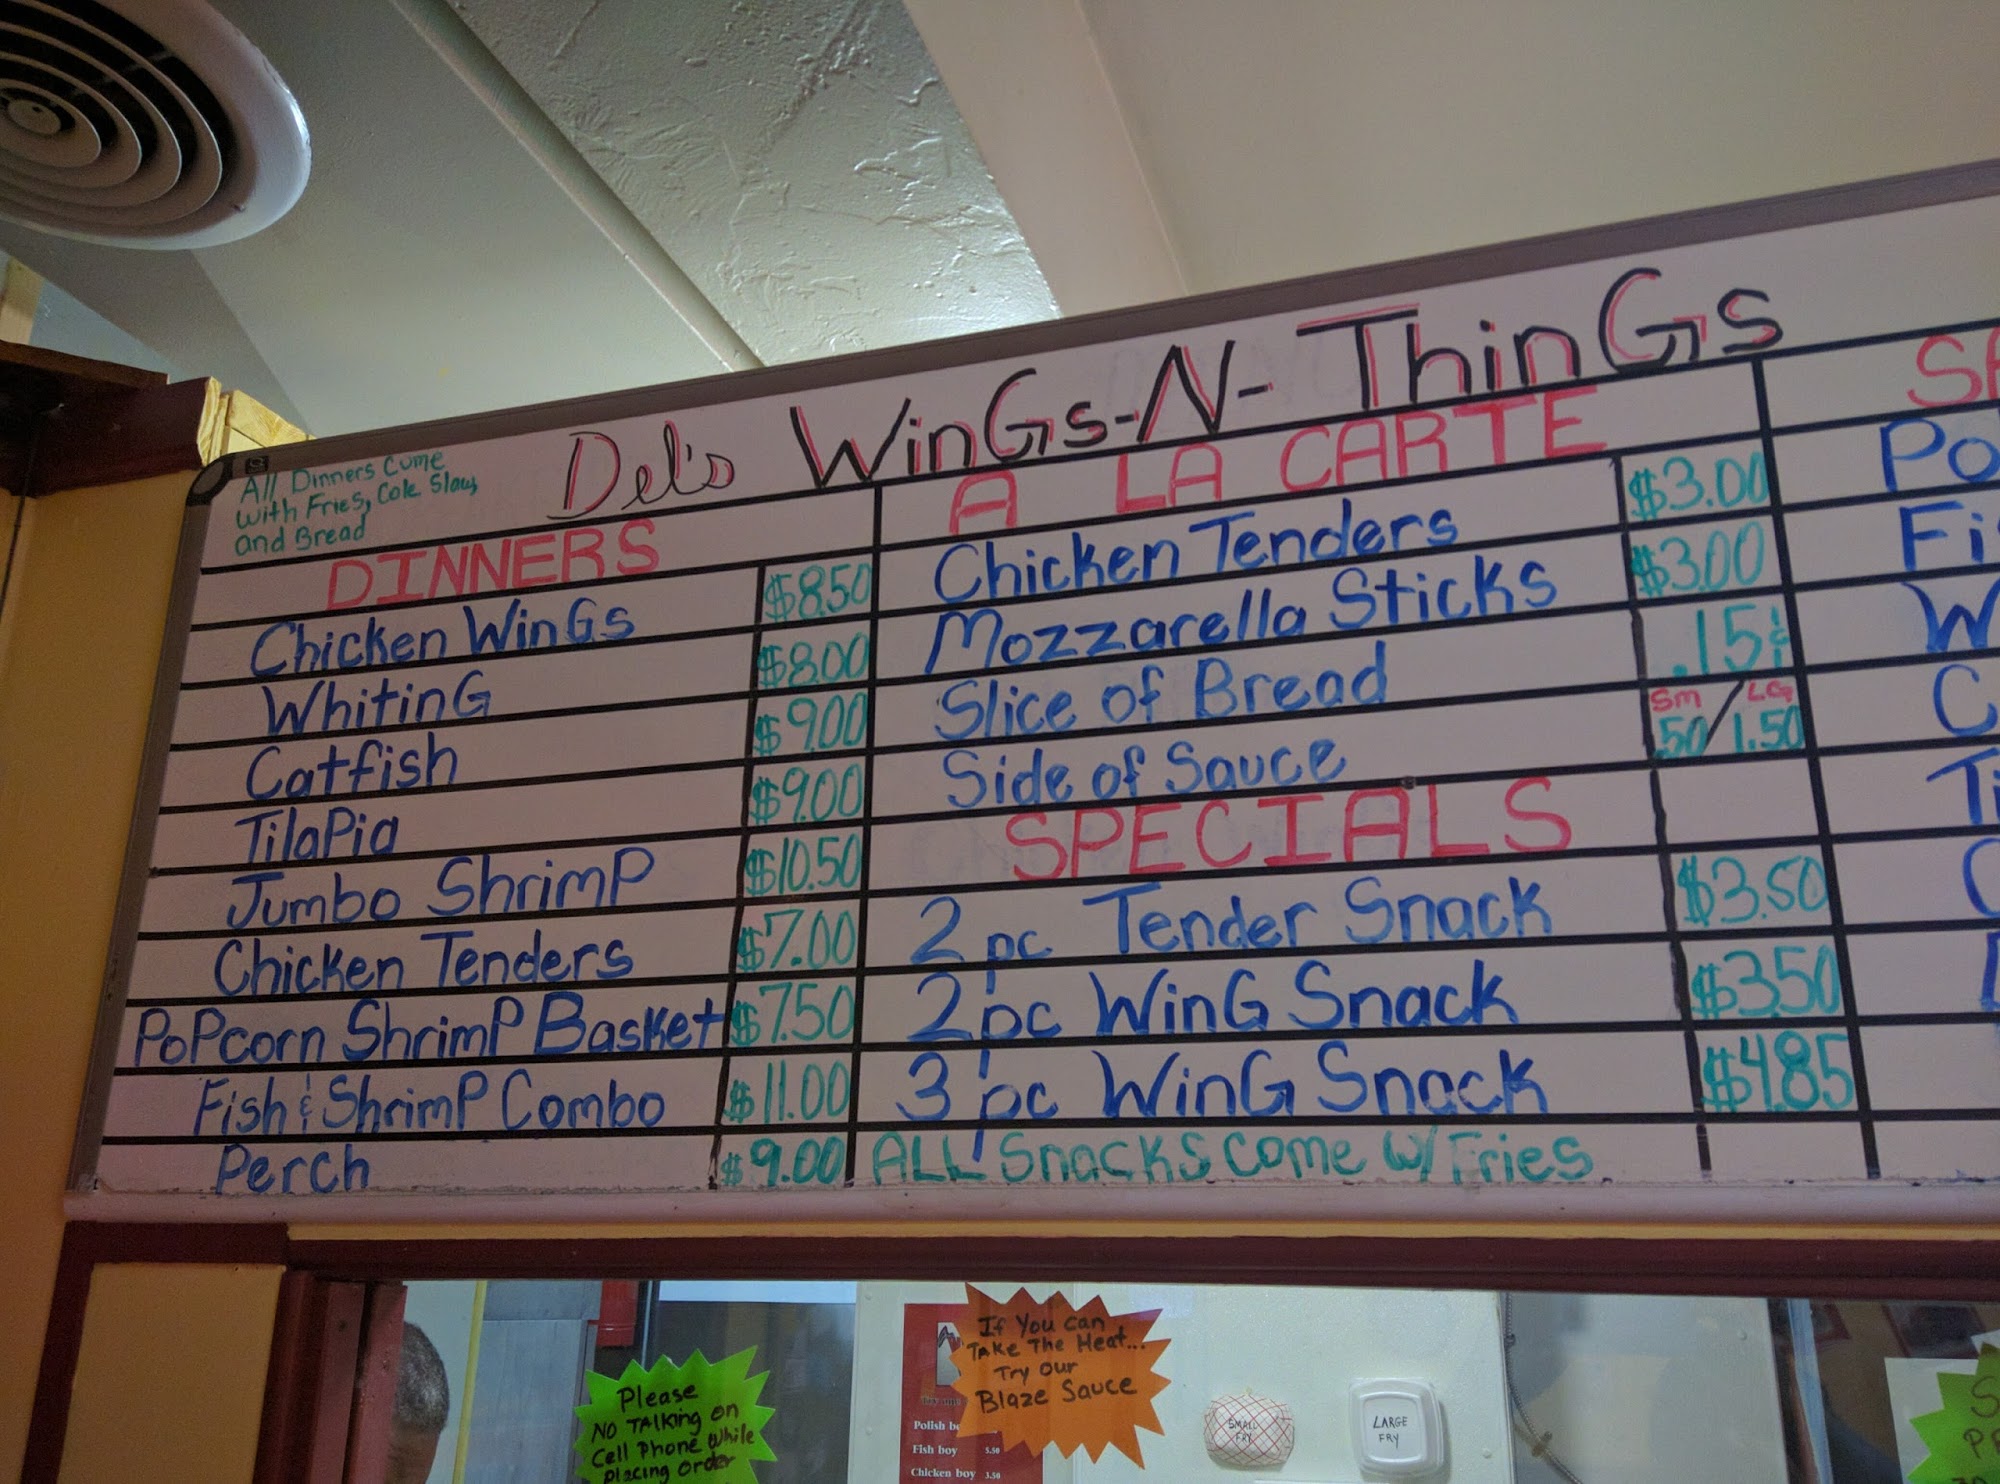 Del's WinGs-N-ThinGs
All Dinners Come
with Fries, Cole Slaw,
and Bread
DINNERS
Chicken WinGs $8.50
WhitinG $8.00
Catfish $9.00
TilaPia $9.00
Jumbo ShrimP $10.50
Chicken Tenders $7.00
PoPcorn ShrimP Basket $7.50
Fish & ShrimP Combo $11.00
Perch $9.00
A LA CARTE
Chicken Tenders $3.00
Mozzarella Sticks $3.00
Slice of Bread .15¢
Sm / LG
Side of Sauce .50/1.50
SPECIALS
2 pc Tender Snack $3.50
2 pc WinG Snack $3.50
3 pc WinG Snack $4.85
ALL Snacks Come W/ Fries
Please
NO TALKing on
Cell Phone While
Placing Order
If You Can
Take The Heat...
Try Our
Blaze Sauce
Polish
Fish boy 3.50
Chicken boy 3.50
SMALL
FRY
LARGE
FRY